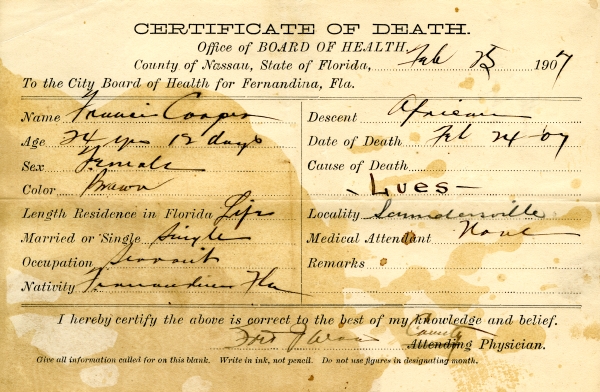 CERTIFICATE OF DEATH.
Office of BOARD OF HEALTH,
County of Nassau, State of Florida, Feb 25 1907
To the City Board of Health for Fernandina, Fla.
Name Francis Cooper
Age 24 yrs 12 days
Sex Female
Color Brown
Length Residence in Florida Life
Married or Single Single
Occupation Servant
Nativity Fernandina Fla
Descent African
Date of Death Feb 24-07
Cause of Death
- Lues -
Locality Saundersville
Medical Attendant None
Remarks
I hereby certify the above is correct to the best of my knowledge and belief.
County
Attending Physician.
Give all information called for on this blank. Write in ink, not pencil. Do not use figures in designating month.